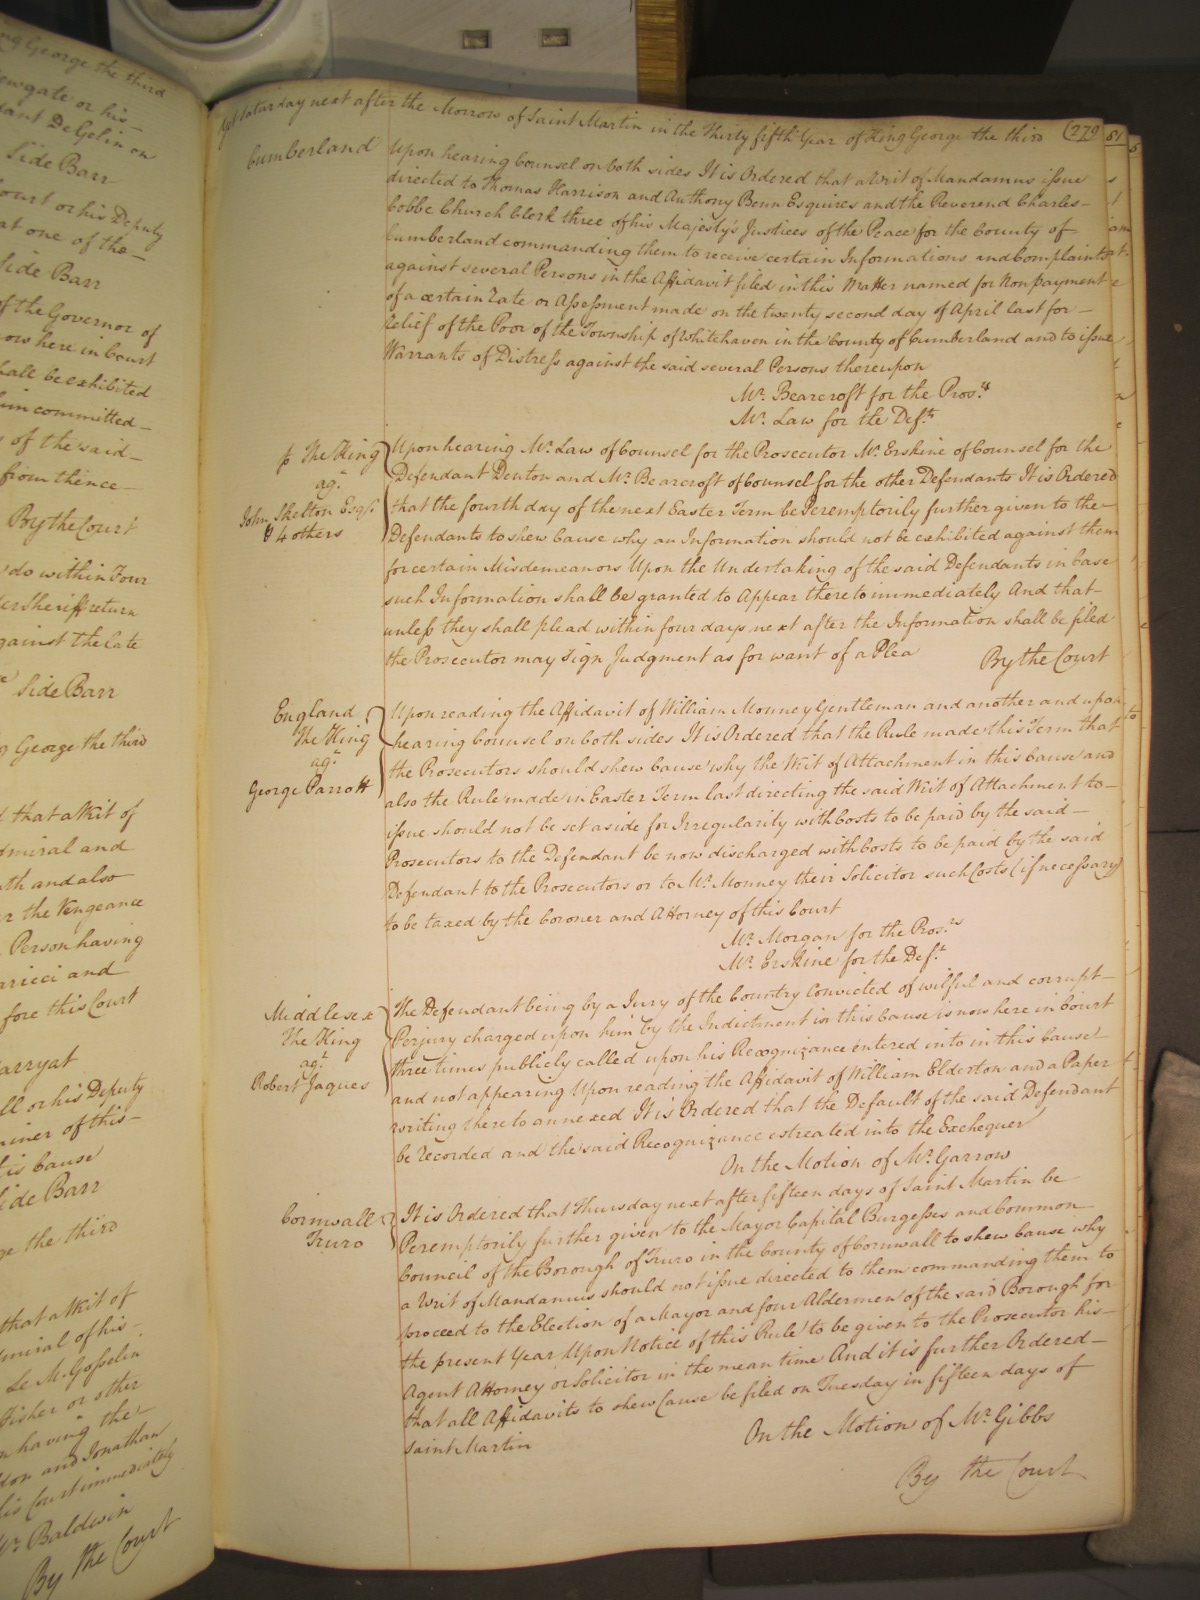 ng George the third
ewgate or his
dant De Gelin on
Side Barr
Court or his Deputy
at one of the
Side Barr
of the Governor of
ow here in Court
hall be exhibited
him committed
of the said
from thence
By the Court
do within Four
der Sheriff return
gainst the late
Side Barr
g George the third
d that a Writ of
dmiral and
ath and also
r the Vengeance
Person having
aricci and
fore this Court
arryat
ll or his Deputy
iner of this
is Cause
Side Barr
ge the third
that a Writ of
dmiral of his
de M. Gosselin
Fisher or other
n having the
don and Jonathan
his Court immediately
Mr. Baldwin
By the Court
Yet Saturday next after the Morrow of Saint Martin in the Thirty fifth Year of King George the third (279
Cumberland
Upon hearing Counsel on both sides It is Ordered that a Writ of Mandamus issue
directed to Thomas Harrison and Anthony Benn Esquires and the Reverend Charles
Cobbe Church Clerk three of his Majesty's Justices of the Peace for the County of
Cumberland commanding them to receive certain Informations and Complaints
against several Persons in the Affidavit filed in this Matter named for Nonpayment
of a certain Rate or Assessment made on the twenty second day of April last for
Relief of the Poor of the Township of Whitehaven in the County of Cumberland and to issue
Warrants of Distress against the said several Persons thereupon
Mr. Bearcroft for the Pros.rs
Mr. Law for the Def.ts
p The King
ag.t
John Skelton Esq.r
& 4 others
Upon hearing Mr. Law of Counsel for the Prosecutor Mr. Erskine of Counsel for the
Defendant Denton and Mr. Bearcroft of Counsel for the other Defendants It is Ordered
that the fourth day of the next Easter Term be Peremptorily further given to the
Defendants to shew Cause why an Information should not be exhibited against them
for certain Misdemeanors Upon the Undertaking of the said Defendants in Case
such Information shall be granted to Appear thereto immediately And that
unless they shall plead within four days next after the Information shall be filed
the Prosecutor may Sign Judgment as for want of a Plea
By the Court
England
The King
ag.t
George Parrott
Upon reading the Affidavit of William Monney Gentleman and another and upon
hearing Counsel on both sides It is Ordered that the Rule made this Term that
the Prosecutors should shew Cause why the Writ of Attachment in this Cause and
also the Rule made in Easter Term last directing the said Writ of Attachment to
issue should not be set aside for Irregularity with Costs to be paid by the said
Prosecutors to the Defendant be now discharged with Costs to be paid by the said
Defendant to the Prosecutors or to Mr. Monney their Solicitor such Costs (if necessary)
to be taxed by the Coroner and Attorney of this Court
Mr. Morgan for the Pros.rs
Mr. Erskine for the Def.t
Middlesex
The King
ag.t
Robert Jaques
The Defendant being by a Jury of the Country Convicted of wilful and corrupt
Perjury charged upon him by the Indictment in this Cause is now here in Court
three times publicly called upon his Recognizance entered into in this Cause
and not appearing Upon reading the Affidavit of William Elderton and a Paper
writing thereto annexed It is Ordered that the Default of the said Defendant
be Recorded and the said Recognizance estreated into the Exchequer
On the Motion of Mr. Garrow
Cornwall
Truro
It is Ordered that Thursday next after fifteen days of Saint Martin be
Peremptorily further given to the Mayor Capital Burgesses and Common
Council of the Borough of Truro in the County of Cornwall to shew Cause why
a Writ of Mandamus should not issue directed to them commanding them to
proceed to the Election of a Mayor and four Aldermen of the said Borough for
the present Year Upon Notice of this Rule to be given to the Prosecutor his
Agent Attorney or Solicitor in the mean time And it is further Ordered
that all Affidavits to shew Cause be filed on Tuesday in fifteen days of
Saint Martin
On the Motion of Mr. Gibbs
By the Court